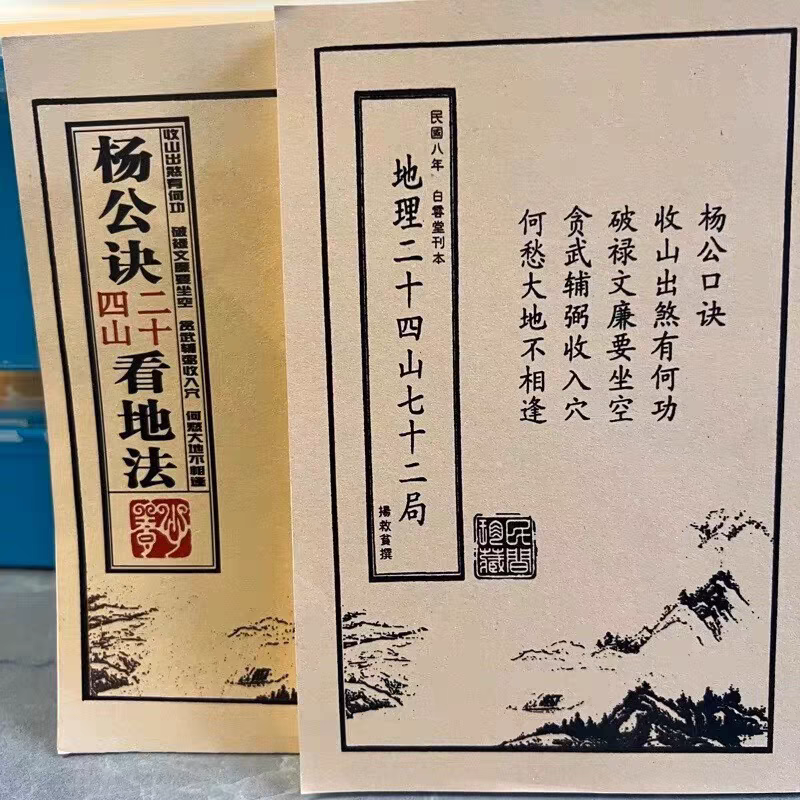 杨公诀
二十四山
看地法
收山出煞有何功 破禄文廉要坐空 贪武辅弼收入穴 何愁大地不相逢
民國八年 白雲堂刊本
地理二十四山七十二局
楊救貧撰
杨公口诀
收山出煞有何功
破禄文廉要坐空
贪武辅弼收入穴
何愁大地不相逢
民间珍藏